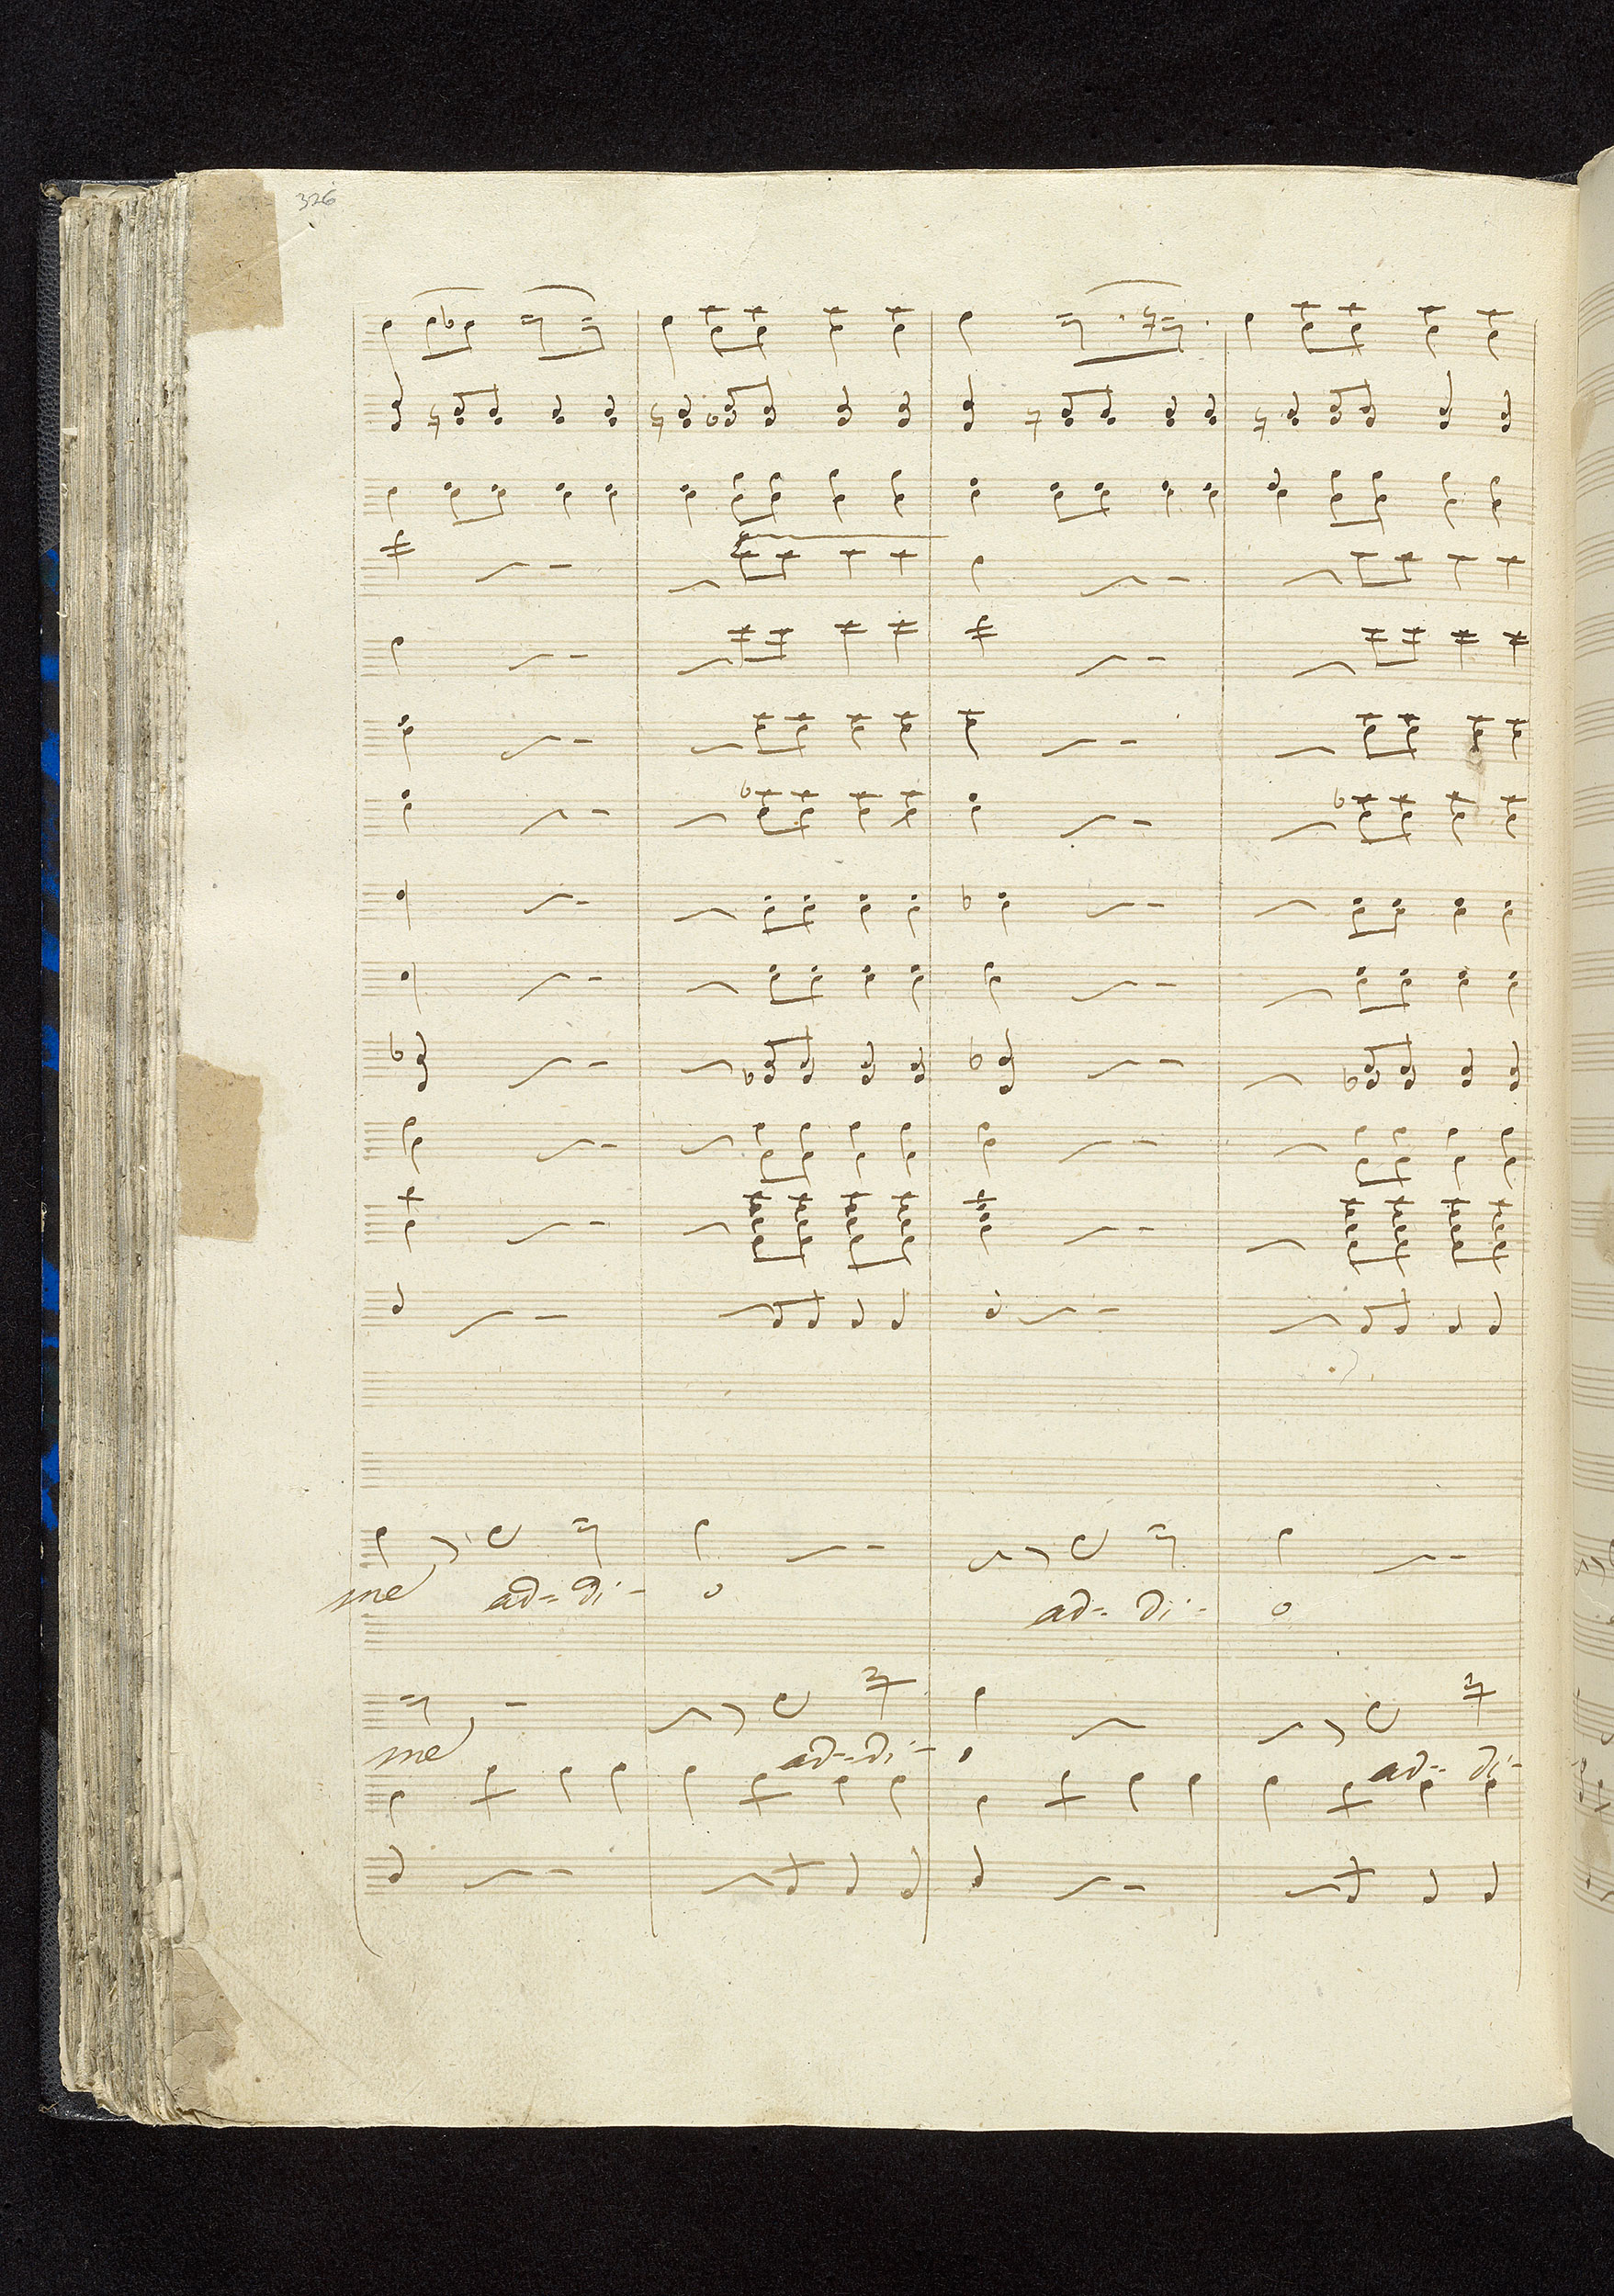 326
me ad= di- o ad= di= o
me ad= di- o ad= di-